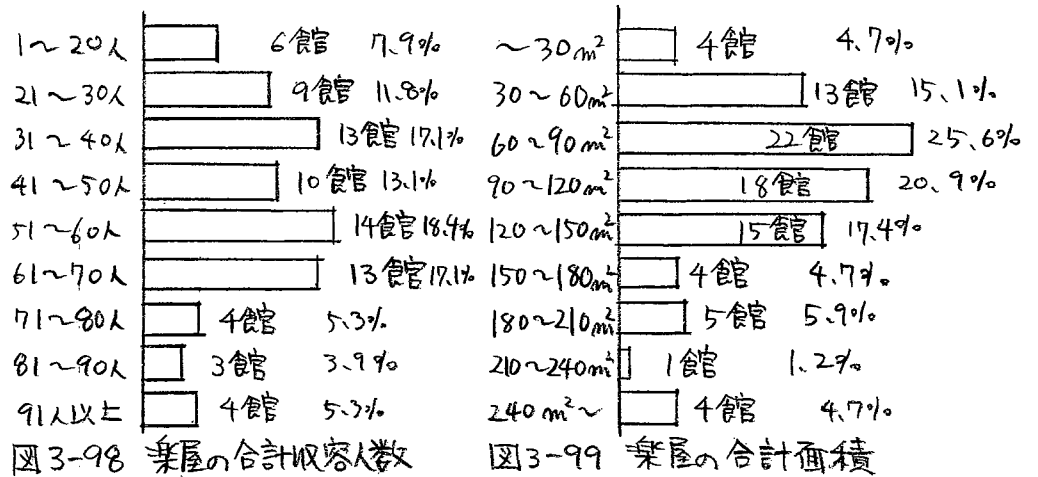 1～20人 6館 7.9%
21～30人 9館 11.8%
31～40人 13館 17.1%
41～50人 10館 13.1%
51～60人 14館 18.4%
61～70人 13館 17.1%
71～80人 4館 5.3%
81～90人 3館 3.9%
91人以上 4館 5.3%
図3-98 楽屋の合計収容人数
～30m² 4館 4.7%
30～60m² 13館 15.1%
60～90m² 22館 25.6%
90～120m² 18館 20.9%
120～150m² 15館 17.4%
150～180m² 4館 4.7%
180～210m² 5館 5.9%
210～240m² 1館 1.2%
240m²～ 4館 4.7%
図3-99 楽屋の合計面積